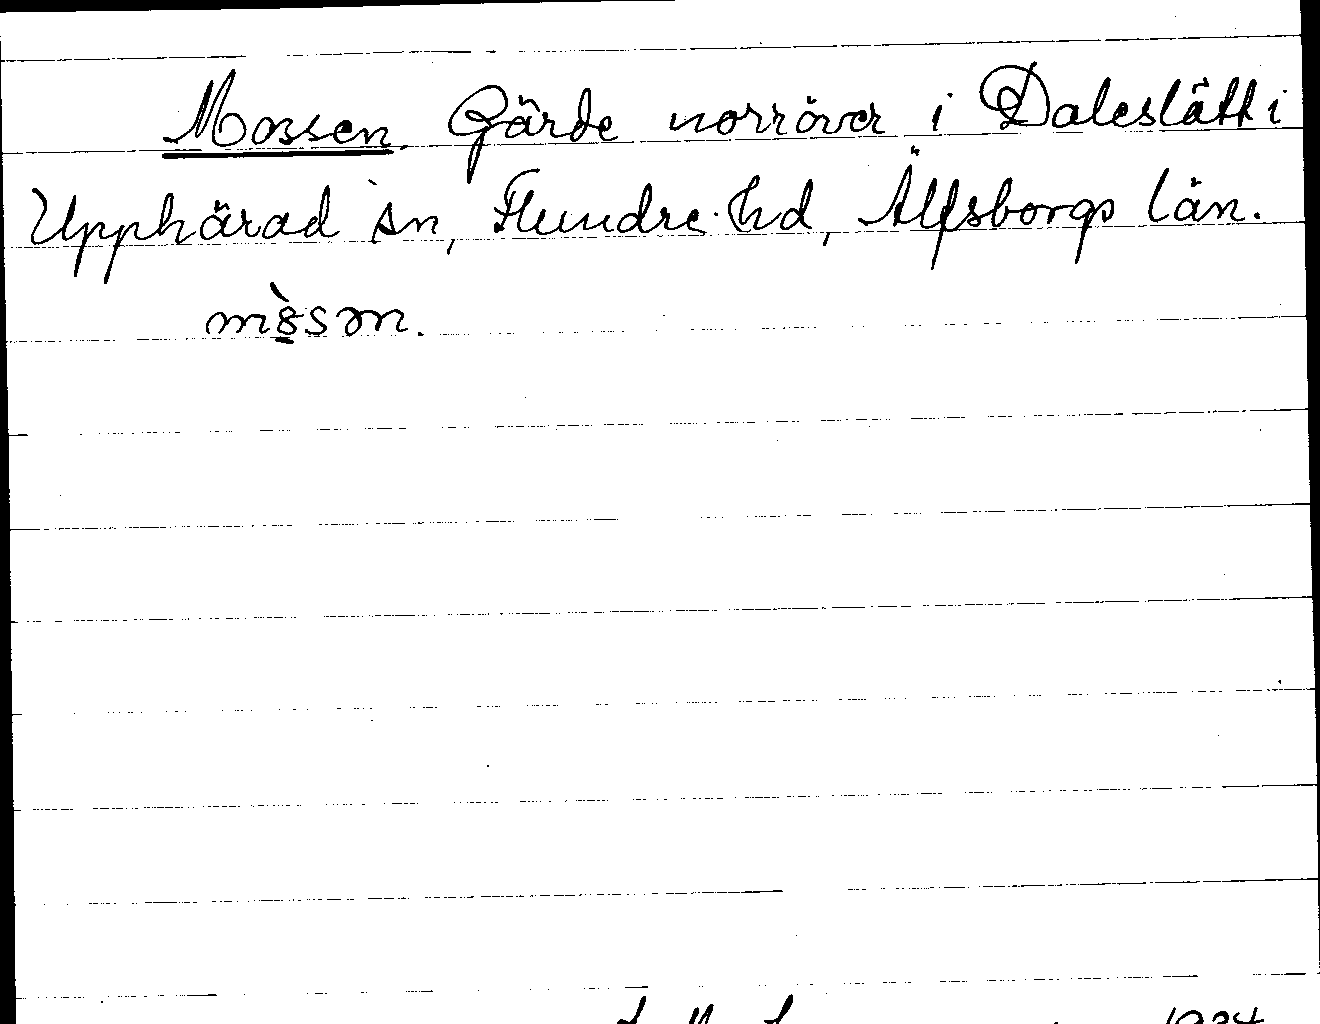 Mossen. Gärde norröver i Daleslätt i
Upphärad sn, Flundre hd, Älfsborgs län.
1934